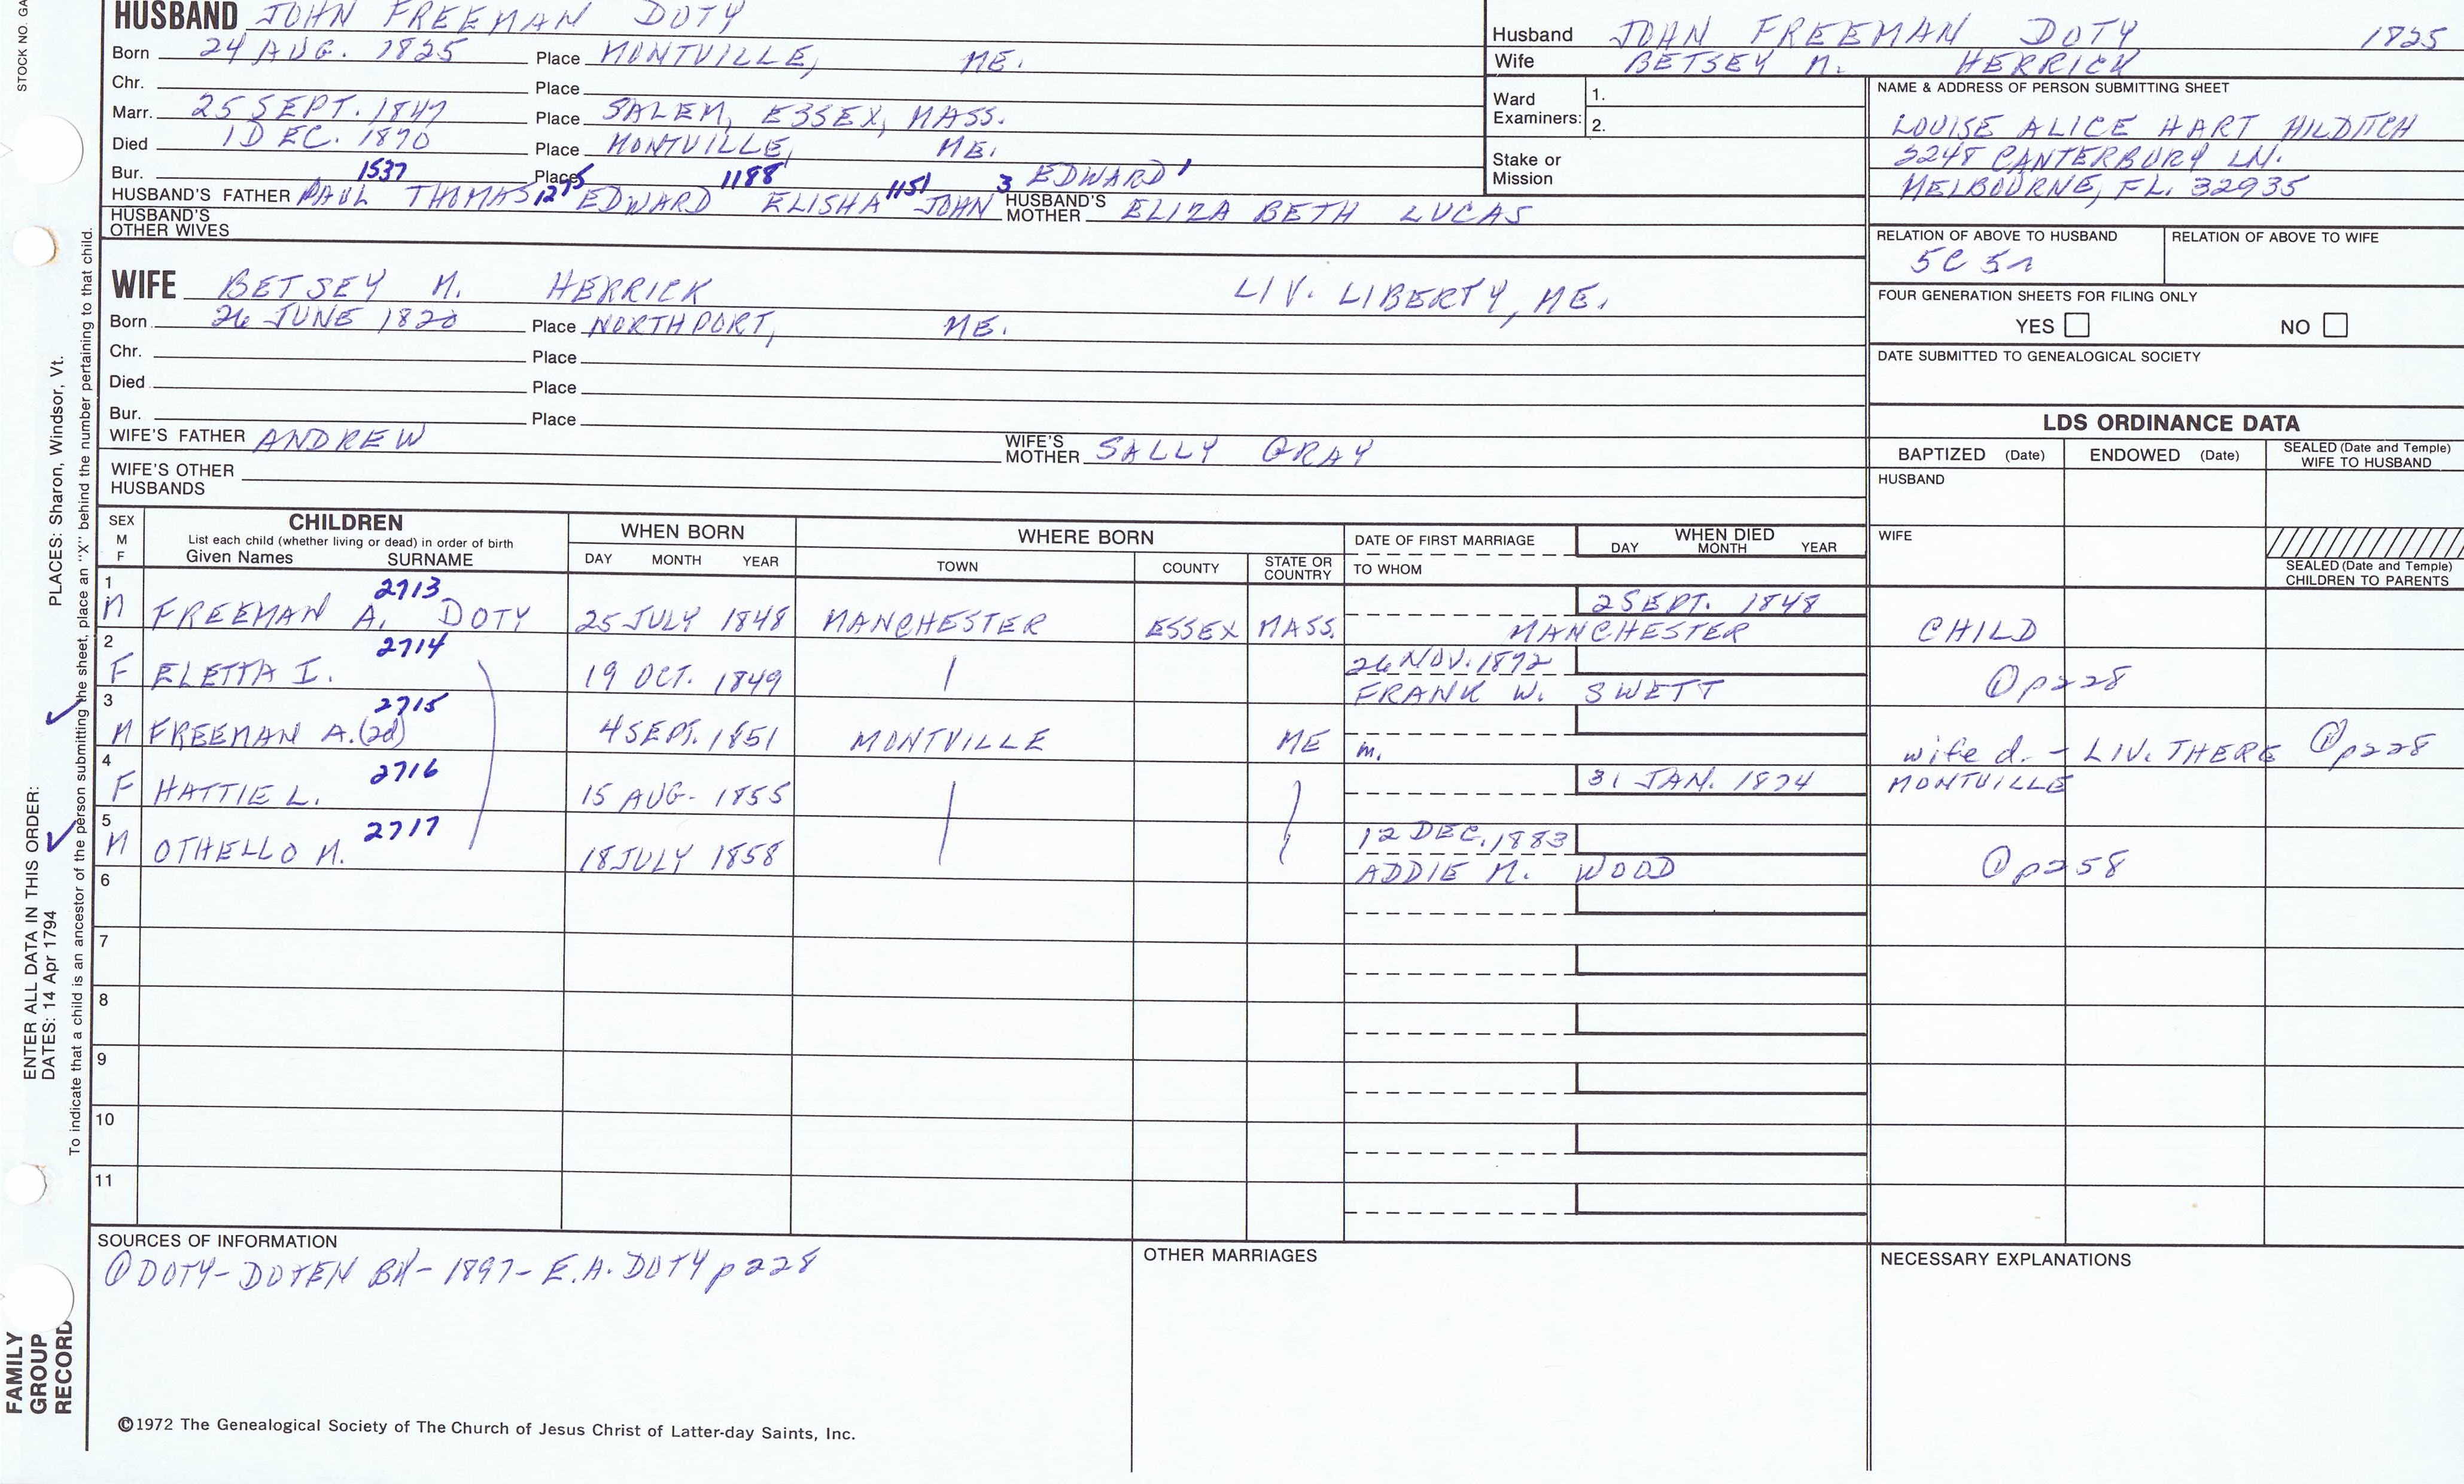 STOCK NO. GA
HUSBAND JOHN FREEMAN DOTY
Born 24 AUG. 1825 Place MONTVILLE, ME.
Chr. Place
Marr. 25 SEPT. 1847 Place SALEM, ESSEX, MASS.
Died 1 DEC. 1890 Place MONTVILLE, ME.
Bur. 1537 Place 1275 1188 1151 3 EDWARD 1
HUSBAND'S FATHER PAUL THOMAS EDWARD ELISHA JOHN HUSBAND'S MOTHER ELIZA BETH LUCAS
HUSBAND'S OTHER WIVES
Husband JOHN FREEMAN DOTY 1825
Wife BETSEY M. HERRICK
Ward Examiners: 1.
2.
Stake or Mission
NAME & ADDRESS OF PERSON SUBMITTING SHEET
LOUISE ALICE HART HILDITCH
3248 CANTERBURY LN.
MELBOURNE, FL. 32935
RELATION OF ABOVE TO HUSBAND RELATION OF ABOVE TO WIFE
5C 5r
FOUR GENERATION SHEETS FOR FILING ONLY
YES NO
DATE SUBMITTED TO GENEALOGICAL SOCIETY
WIFE BETSEY M. HERRICK LIV. LIBERTY, ME.
Born 26 JUNE 1820 Place NORTHPORT, ME.
Chr. Place
Died Place
Bur. Place
WIFE'S FATHER ANDREW WIFE'S MOTHER SALLY GRAY
WIFE'S OTHER HUSBANDS
LDS ORDINANCE DATA
BAPTIZED (Date) ENDOWED (Date) SEALED (Date and Temple) WIFE TO HUSBAND
HUSBAND
WIFE
SEALED (Date and Temple) CHILDREN TO PARENTS
SEX M F CHILDREN WHEN BORN WHERE BORN DATE OF FIRST MARRIAGE WHEN DIED
List each child (whether living or dead) in order of birth
Given Names SURNAME DAY MONTH YEAR TOWN COUNTY STATE OR COUNTRY TO WHOM DAY MONTH YEAR
1 2713 2 SEPT. 1848
M FREEMAN A. DOTY 25 JULY 1848 MANCHESTER ESSEX MASS. MANCHESTER CHILD
2 2714 26 NOV. 1872
F ELETTA I. 19 OCT. 1849 FRANK W. SWETT @ p228
3 2715
M FREEMAN A.(2d) 4 SEPT. 1851 MONTVILLE ME m. wife d. - LIV. THERE @ p228
4 2716 31 JAN. 1874 MONTVILLE
F HATTIE L. 15 AUG. 1855
5 2717 12 DEC. 1883
M OTHELLO M. 18 JULY 1858 ADDIE M. WOOD @ p258
6
7
8
9
10
11
SOURCES OF INFORMATION
@ DOTY-DOTEN BK-1897-E.A. DOTY p228
OTHER MARRIAGES
NECESSARY EXPLANATIONS
©1972 The Genealogical Society of The Church of Jesus Christ of Latter-day Saints, Inc.
ENTER ALL DATA IN THIS ORDER:
DATES: 14 Apr 1794
PLACES: Sharon, Windsor, Vt.
To indicate that a child is an ancestor of the person submitting the sheet, place an "X" behind the number pertaining to that child.
FAMILY GROUP RECORD